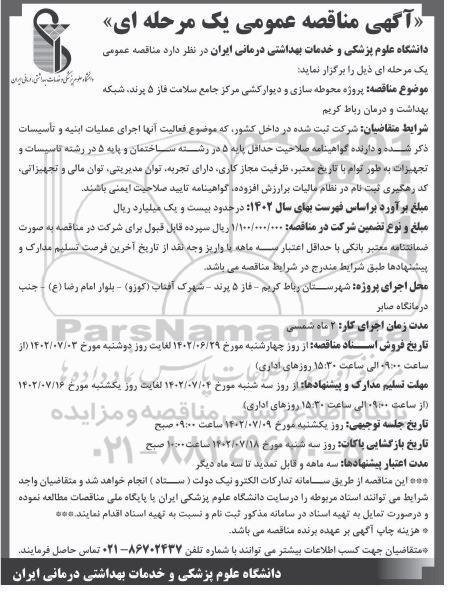 «آگهی مناقصه عمومی یک مرحله ای»
دانشگاه علوم پزشکی و خدمات بهداشتی درمانی ایران
دانشگاه علوم پزشکی و خدمات بهداشتی درمانی ایران در نظر دارد مناقصه عمومی
یک مرحله ای ذیل را برگزار نماید:
موضوع مناقصه: پروژه محوطه سازی و دیوارکشی مرکز جامع سلامت فاز ۵ پرند، شبکه
بهداشت و درمان رباط کریم
شرایط متقاضیان: شرکت ثبت شده در داخل کشور، که موضوع فعالیت آنها اجرای عملیات ابنیه و تأسیسات
ذکر شده و دارنده گواهینامه صلاحیت حداقل پایه ۵ در رشته ساختمان و پایه ۵ در رشته تاسیسات و
تجهیزات به طور توام با تاریخ معتبر، ظرفیت مجاز کاری، دارای تجربه، توان مدیریتی، توان مالی و تجهیزاتی،
کد رهگیری ثبت نام در نظام مالیات برارزش افزوده، گواهینامه تایید صلاحیت ایمنی باشند.
مبلغ برآورد براساس فهرست بهای سال ۱۴۰۲: درحدود بیست و یک میلیارد ریال
مبلغ و نوع تضمین شرکت در مناقصه: ۱/۱۰۰/۰۰۰/۰۰۰ ریال سپرده قابل قبول برای شرکت در مناقصه به صورت
ضمانتنامه معتبر بانکی با حداقل اعتبار سه ماهه یا واریز وجه نقد از تاریخ آخرین فرصت تسلیم مدارک و
پیشنهادها طبق شرایط مندرج در شرایط مناقصه می باشد.
محل اجرای پروژه: شهرستان رباط کریم - فاز ۵ پرند - شهرک آفتاب (کوزو) - بلوار امام رضا (ع) - جنب
درمانگاه صابر
مدت زمان اجرای کار: ۲ ماه شمسی
تاریخ فروش اسناد مناقصه: از روز چهارشنبه مورخ ۱۴۰۲/۰۶/۲۹ لغایت روز دوشنبه مورخ ۱۴۰۲/۰۷/۰۳ (از
ساعت ۰۹:۰۰ الی ساعت ۱۵:۳۰ روزهای اداری)
مهلت تسلیم مدارک و پیشنهادها: از روز سه شنبه مورخ ۱۴۰۲/۰۷/۰۴ لغایت روز یکشنبه مورخ ۱۴۰۲/۰۷/۱۶
(از ساعت ۰۹:۰۰ الی ساعت ۱۵:۳۰ روزهای اداری)
تاریخ جلسه توجیهی: روز یکشنبه مورخ ۱۴۰۲/۰۷/۰۹ ساعت ۰۹:۰۰ صبح
تاریخ بازگشایی پاکات: روز سه شنبه مورخ ۱۴۰۲/۰۷/۱۸ ساعت ۱۰:۰۰ صبح
مدت اعتبار پیشنهادها: سه ماهه و قابل تمدید تا سه ماه دیگر
*** این مناقصه از طریق سامانه تدارکات الکترونیک دولت ( ستاد ) انجام خواهد شد و متقاضیان واجد
شرایط می توانند اسناد مربوطه را درسایت دانشگاه علوم پزشکی ایران یا پایگاه ملی مناقصات مطالعه نموده
و درصورت تمایل به تهیه اسناد در سامانه مذکور ثبت نام و نسبت به تهیه اسناد اقدام نمایند.***
* هزینه چاپ آگهی بر عهده برنده مناقصه می باشد.
*متقاضیان جهت کسب اطلاعات بیشتر می توانند با شماره تلفن ۸۶۷۰۲۴۳۷-۰۲۱ تماس حاصل فرمایند.
دانشگاه علوم پزشکی و خدمات بهداشتی درمانی ایران
ParsNamadData
۰۲۱-۸۸۳۴۹۶۷۰-۵